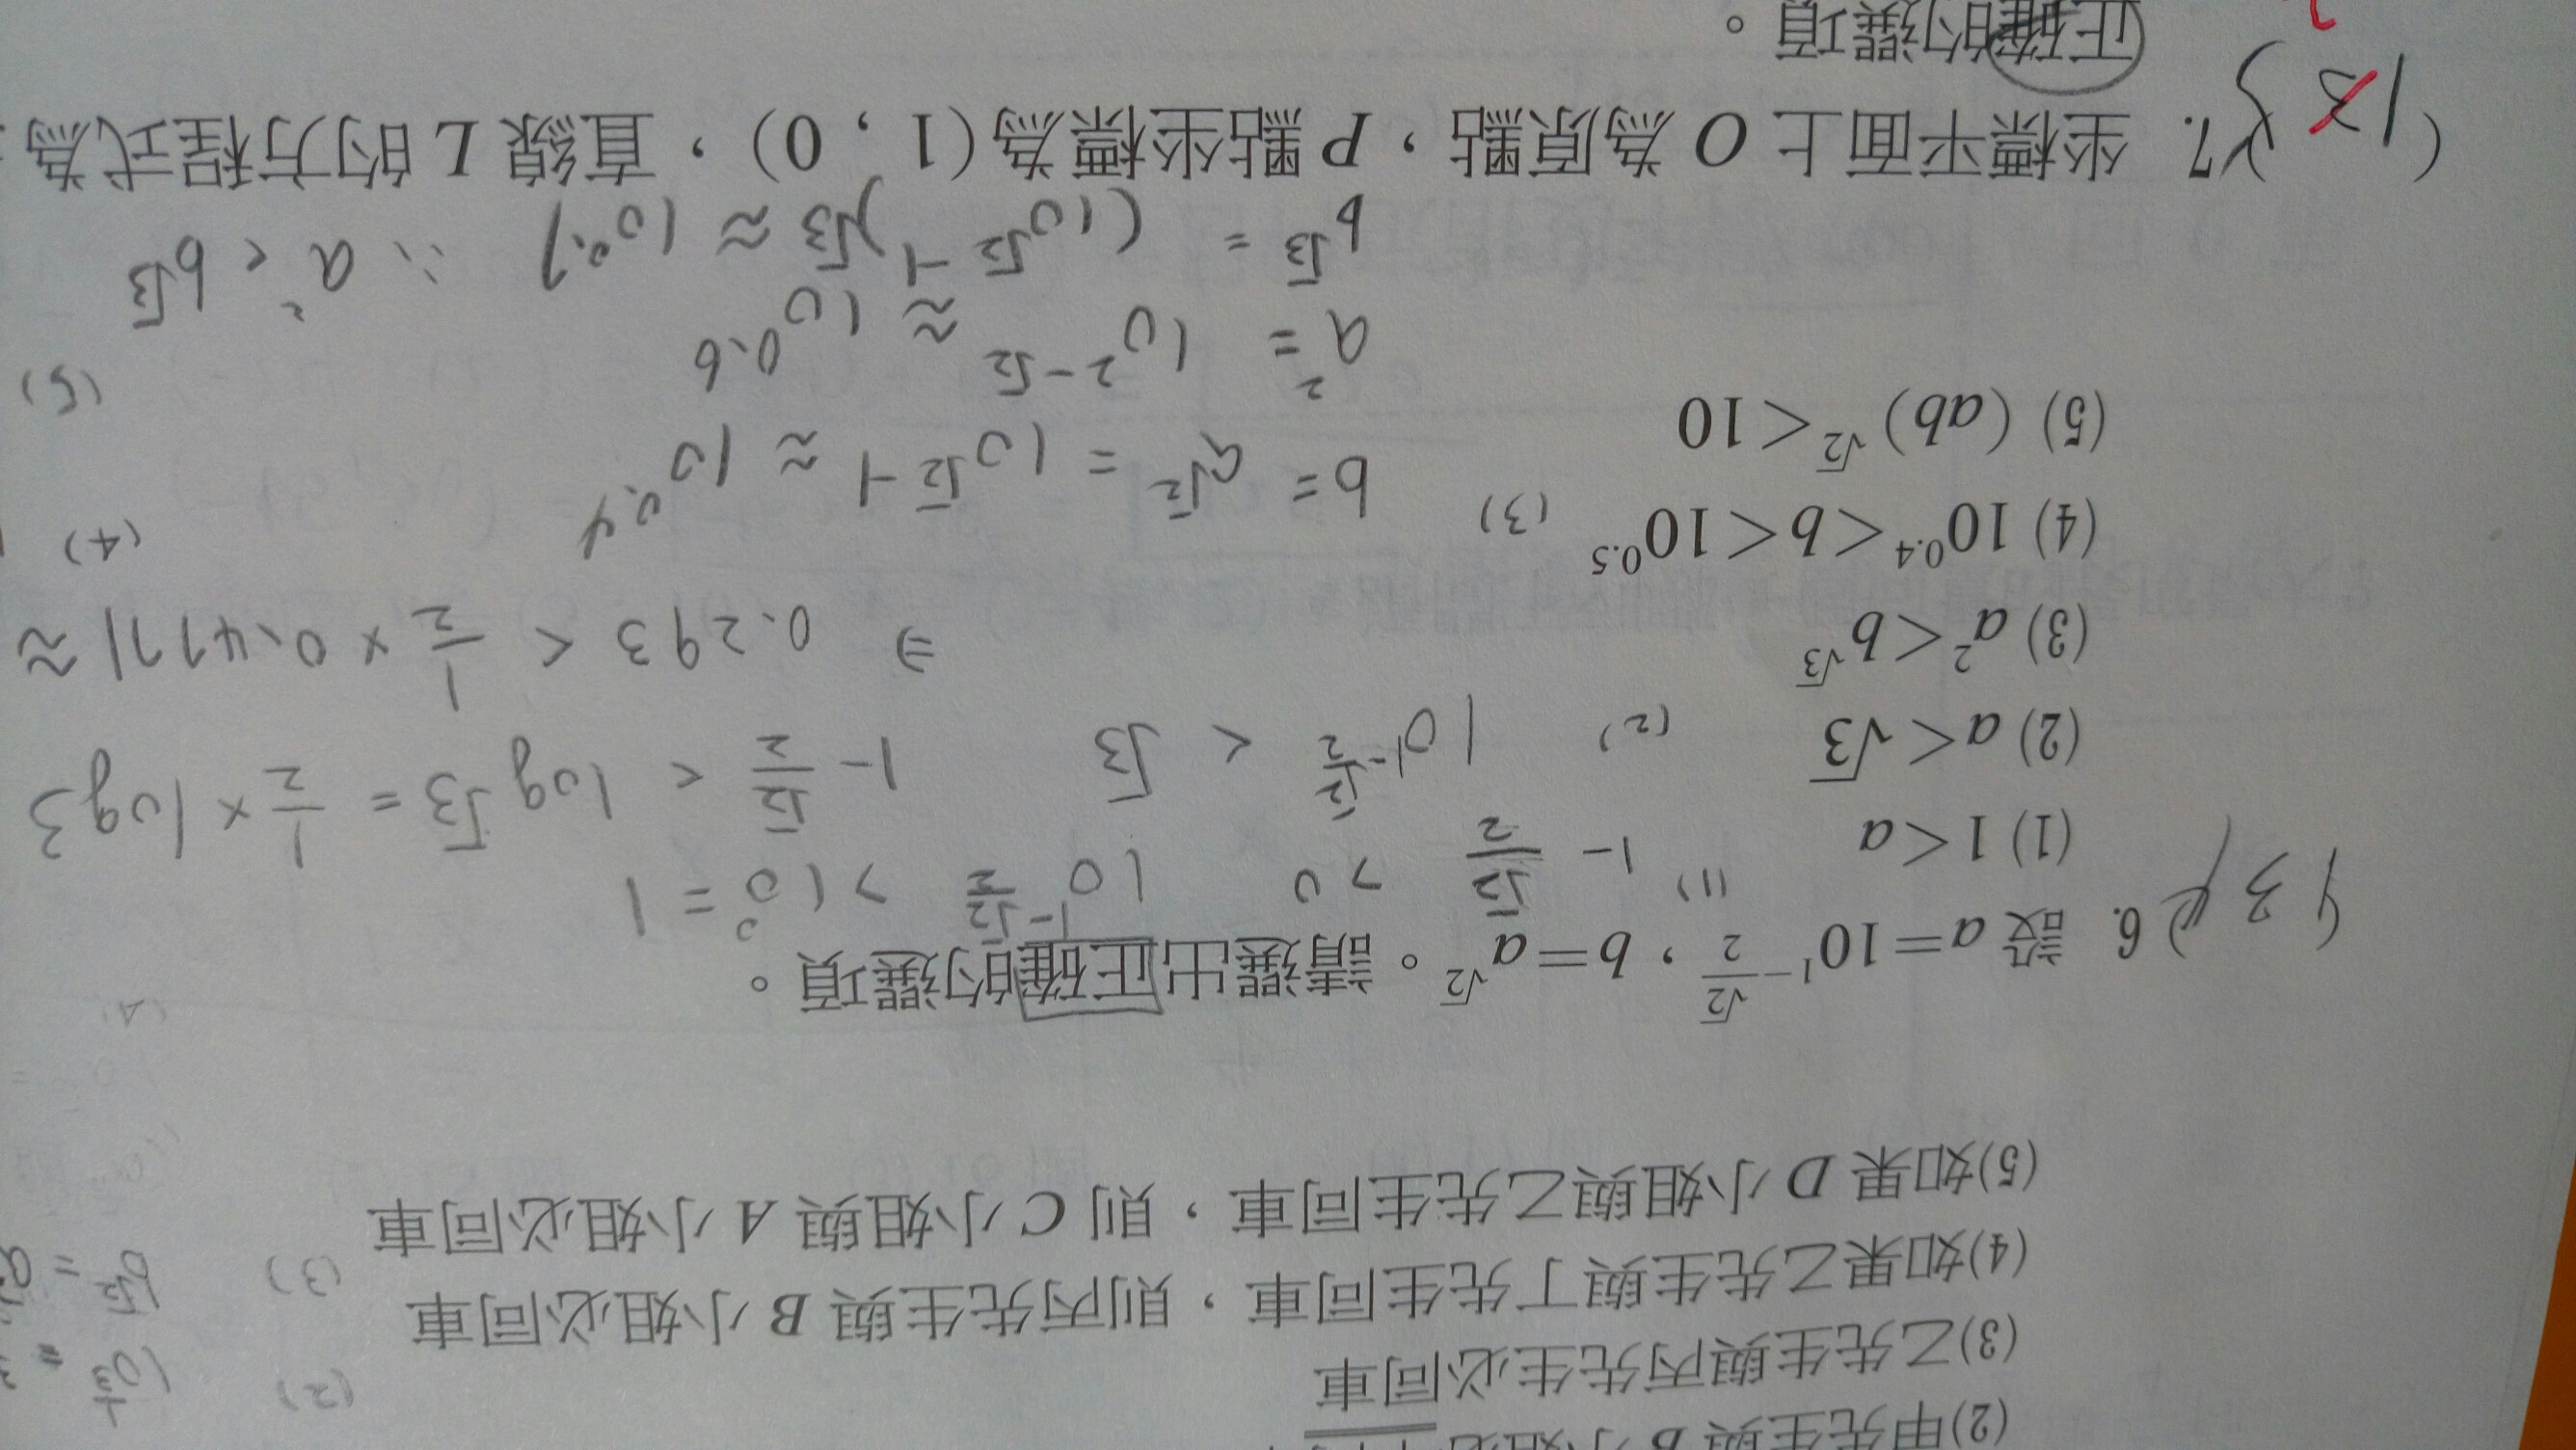 (2)甲先生與 B 小姐必同車
(3)乙先生與丙先生必同車
(4)如果乙先生與丁先生同車，則丙先生與 B 小姐必同車
(5)如果 D 小姐與乙先生同車，則 C 小姐與 A 小姐必同車
(2)
(3)
6. 設 a=10^{1-\frac{\sqrt{2}}{2}}，b=a^{\sqrt{2}}。請選出正確的選項。
(1) 1<a
(1) 1-\frac{\sqrt{2}}{2} > 0 10^{1-\frac{\sqrt{2}}{2}} > 10^0 = 1
(2) a<\sqrt{3}
(2) 10^{1-\frac{\sqrt{2}}{2}} < \sqrt{3} 1-\frac{\sqrt{2}}{2} < log\sqrt{3} = \frac{1}{2} × log3
⇒ 0.293 < \frac{1}{2} × 0.4771 ≈
(3) a^2<b^{\sqrt{3}}
(4) 10^{0.4}<b<10^{0.5}
(3) b = a^{\sqrt{2}} = 10^{\sqrt{2}-1} ≈ 10^{0.4}
(4)
(5) (ab)^{\sqrt{2}}<10
a^2 = 10^{2-\sqrt{2}} ≈ 10^{0.6}
(5)
b^{\sqrt{3}} = (10^{\sqrt{2}-1})^{\sqrt{3}} ≈ 10^{0.7} ∴ a^2 < b^{\sqrt{3}}
7. 坐標平面上 O 為原點，P 點坐標為(1，0)，直線 L 的方程式為
正確的選項。